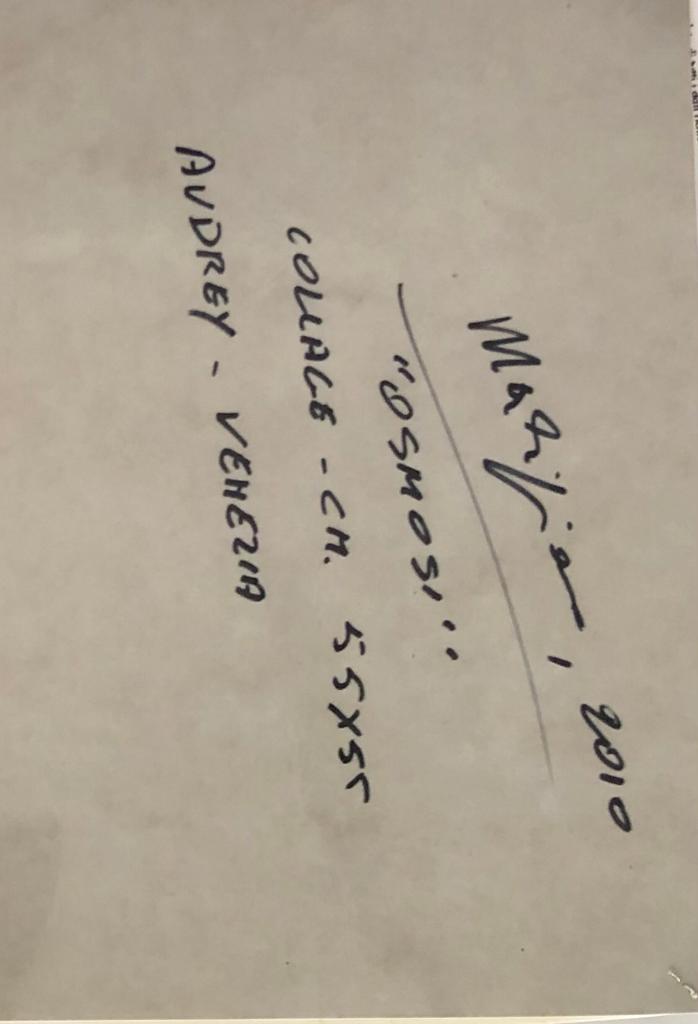 , 2010
"OSMOSI"
COLLAGE - CM. 55X55
AUDREY - VENEZIA